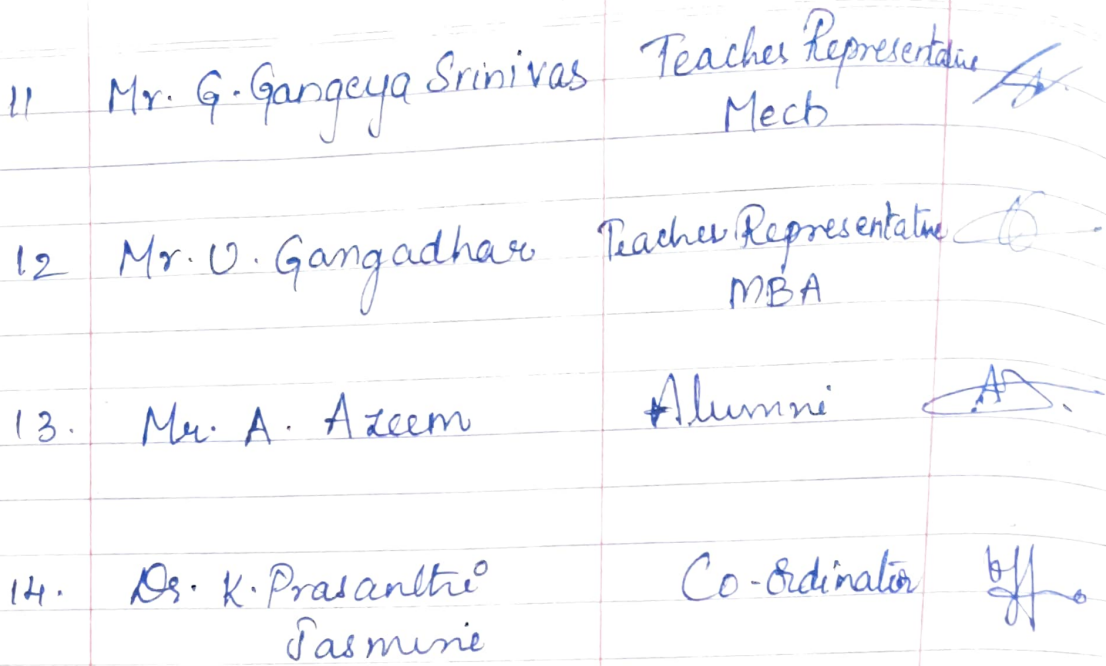 11 Mr. G. Gangeya Srinivas Teacher Representative
Mech
12 Mr. U. Gangadhar Teacher Representative
MBA
13. Mr. A. Azeem Alumni
14. Dr. K. Prasanthi Co-ordinator
Jasmine